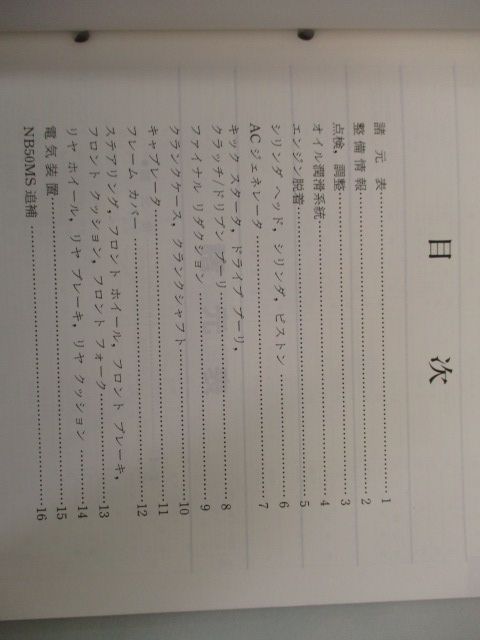 目 次
諸 元 表 1
整備情報 2
点検，調整 3
オイル潤滑系統 4
エンジン脱着 5
シリンダ ヘッド，シリンダ，ピストン 6
ACジェネレータ 7
キック スタータ，ドライブ プーリ，
クラッチ/ドリブン プーリ 8
ファイナル リダクション 9
クランクケース，クランクシャフト 10
キャブレータ 11
フレーム カバー 12
ステアリング，フロント ホイール，フロント ブレーキ，
フロント クッション，フロント フォーク 13
リヤ ホイール，リヤ ブレーキ，リヤ クッション 14
電気装置 15
NB50MS 追補 16